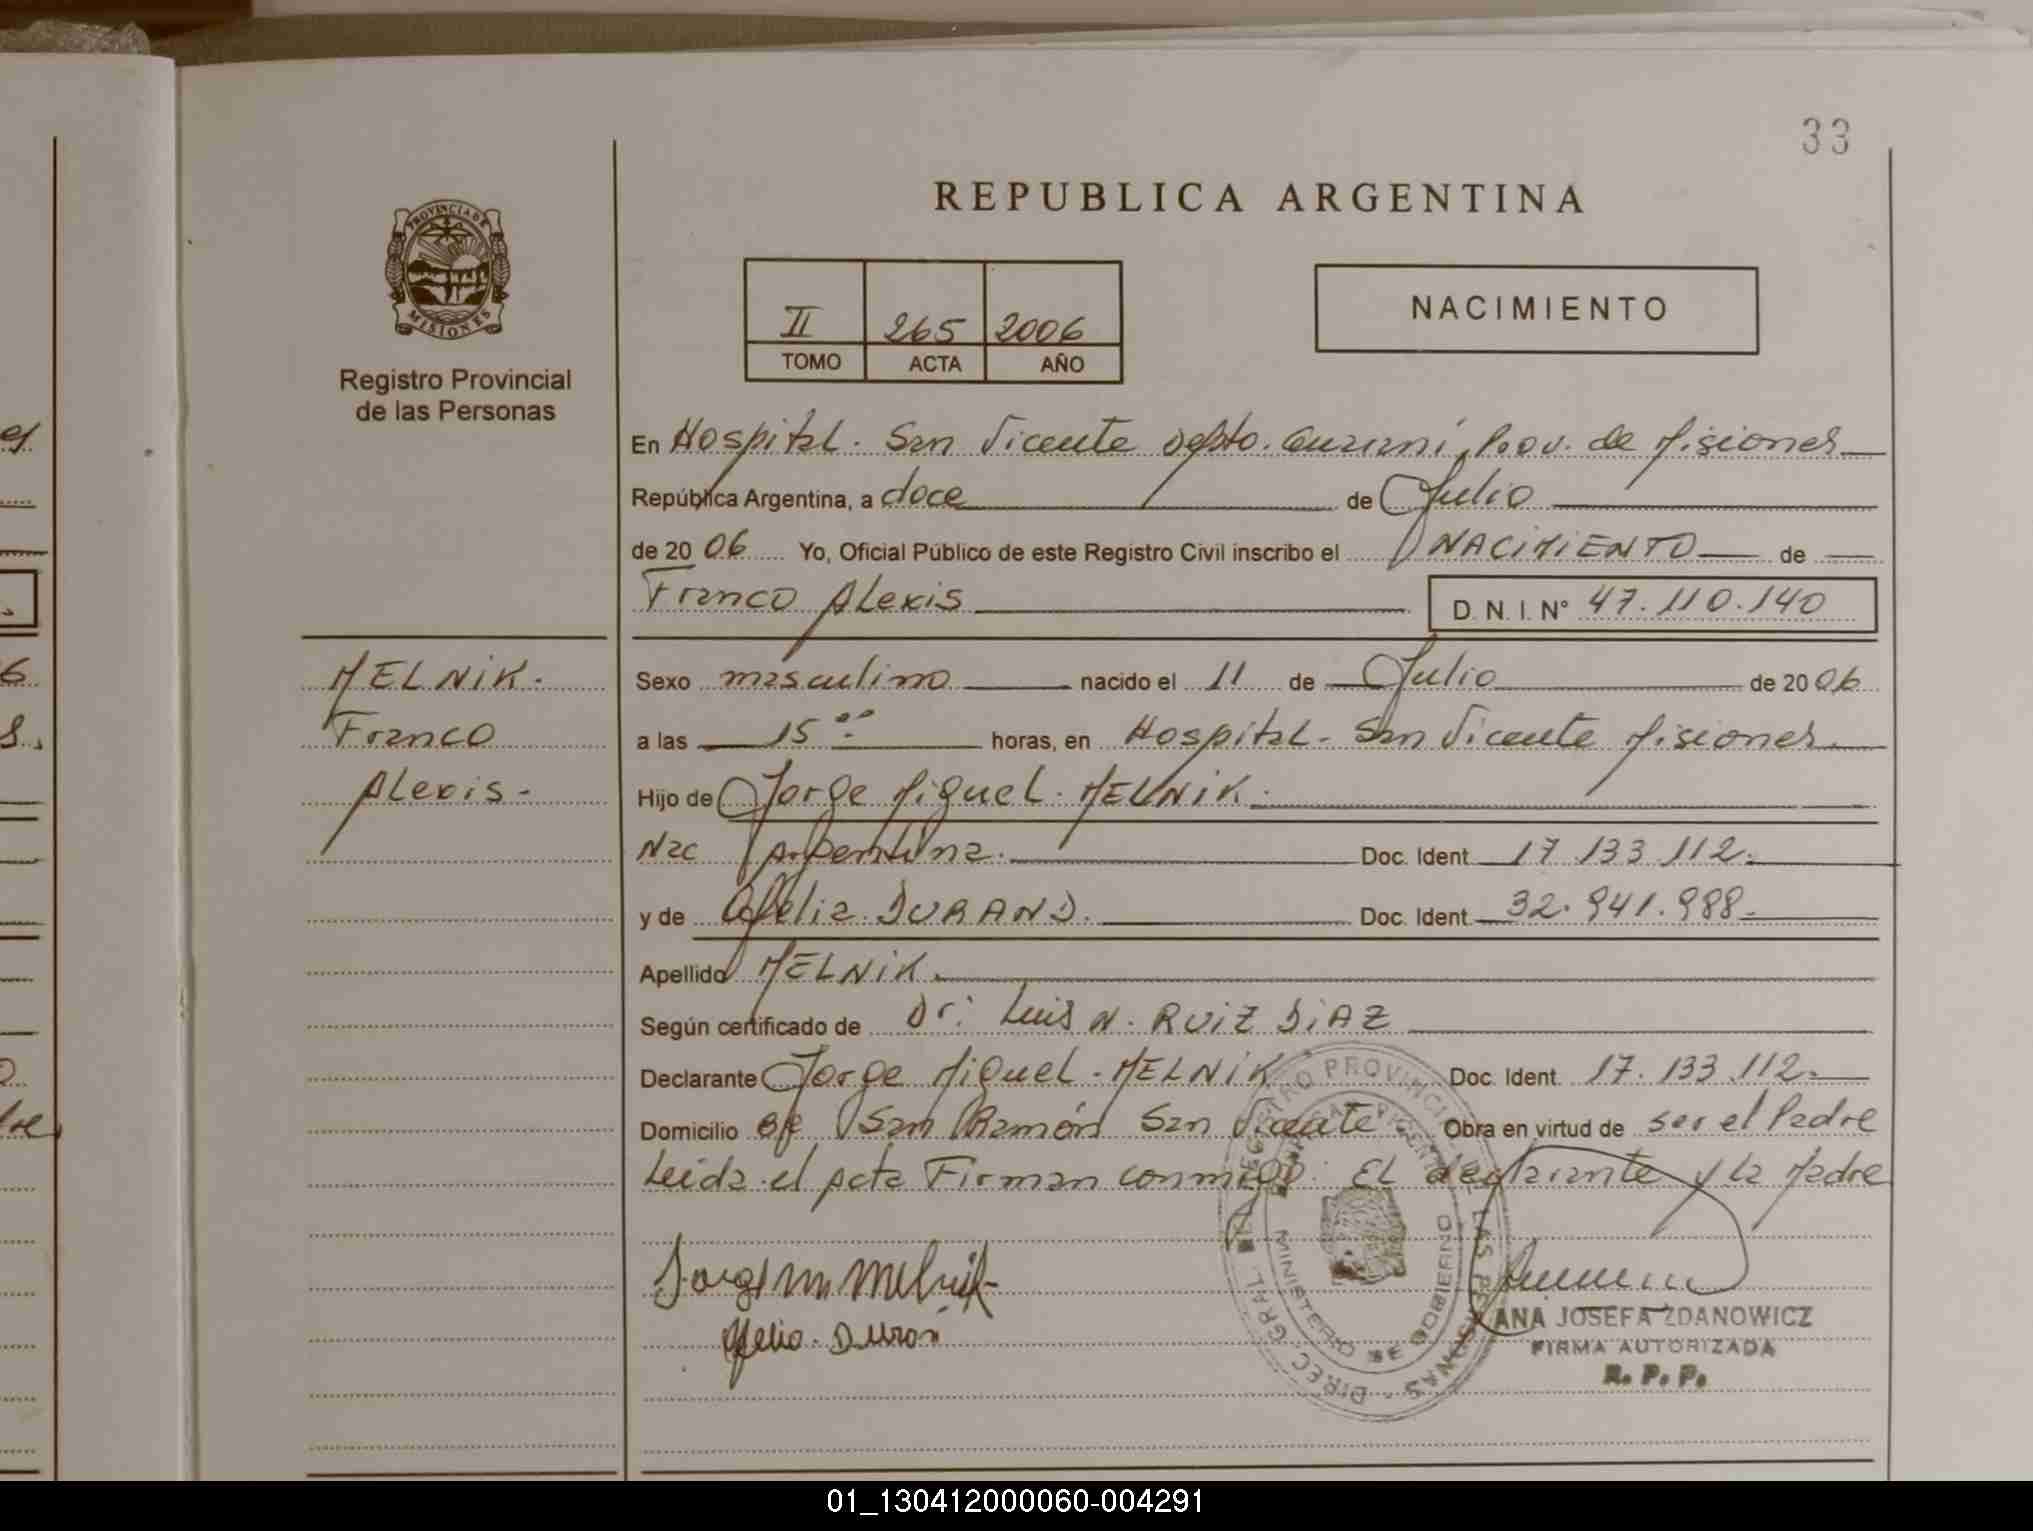 33
REPUBLICA ARGENTINA
PROVINCIA DE
MISIONES
Registro Provincial
de las Personas
II 265 2006
TOMO ACTA AÑO
NACIMIENTO
En Hospital. San Vicente Depto. Guaraní, Prov. de Misiones
República Argentina, a doce de Julio
de 2006 Yo, Oficial Público de este Registro Civil inscribo el NACIMIENTO de
Franco Alexis D. N. I. Nº 47.110.140
MELNIK.
Franco
Alexis-
Sexo masculino nacido el 11 de Julio de 2006
a las 15ºº horas, en Hospital- San Vicente Misiones
Hijo de Jorge Miguel. MELNIK.
Nac Argentina. Doc. Ident 17 133 112.
y de Ofelia. DURAND. Doc. Ident 32.941.988.
Apellido MELNIK.
Según certificado de Dr: Luis N. RUIZ DIAZ
Declarante Jorge Miguel-MELNIK Doc. Ident. 17.133.112.
Domicilio San Ramón San Vicente Obra en virtud de ser el Padre
Leida el acta Firman conmigo: El declarante y la Madre
Jorge M Melnik
Ofelia. Duran
DIREC. GRAL. DEL REGISTRO PROVINCIAL DE LAS PERSONAS
MINISTERIO DE GOBIERNO
ANA JOSEFA ZDANOWICZ
FIRMA AUTORIZADA
R. P. P.
01_130412000060-004291